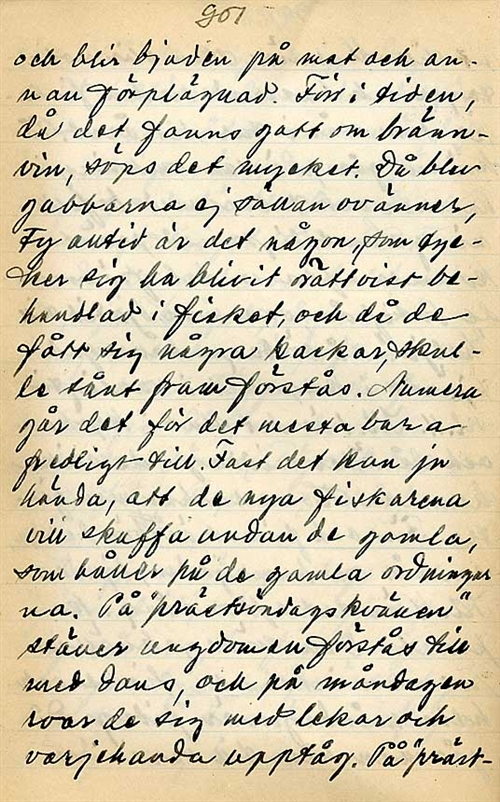 901
och blir bjuden på mat och an-
nan förplägnad. Förr i tiden,
då det fanns gott om bränn-
vin, söps det mycket. Då blev
gubbarna ej sällan ovänner,
Ty alltid är det någon, som tyc-
ker sig ha blivit orättvist be-
handlad i fisket, och då de
fått sig några kackar, skul-
le sånt fram förstås. Numera
går det för det mesta bara
fredligt till. Fast det kan ju
hända, att de nya fiskarena
vill skuffa undan de gamla,
som håller på de gamla ordningar
na. På "prästsöndagskvällen"
ställer ungdomen förstås till
med dans, och på måndagen
roar de sig med lekar och
varjehanda upptåg. På "präst-